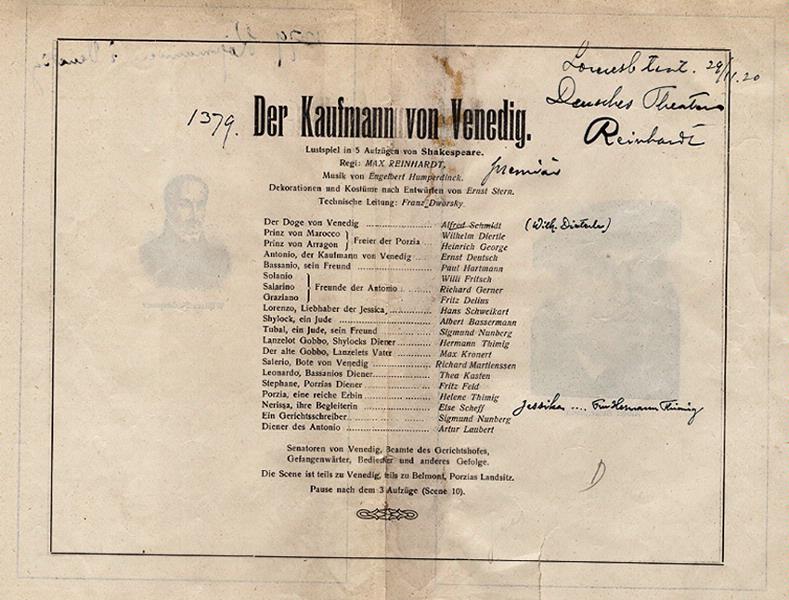 29/11.20
Deusches Theater
Reinhardt
1379.
Der Kaufmann von Venedig.
Lustspiel in 5 Aufzügen von Shakespeare.
Regi: MAX REINHARDT.
premiär
Musik von Engelbert Humperdinck.
Dekorationen und Kostüme nach Entwürfen von Ernst Stern.
Technische Leitung: Franz Dworsky.
Der Doge von Venedig ........ Alfred Schmidt (Wilh. Dieterle)
Prinz von Marocco } Freier der Porzia .... Wilhelm Diertle
Prinz von Arragon } Heinrich George
Antonio, der Kaufmann von Venedig .... Ernst Deutsch
Bassanio, sein Freund ........ Paul Hartmann
Solanio } Willi Fritsch
Salarino } Freunde der Antonio .... Richard Gerner
Graziano } Fritz Delius
Lorenzo, Liebhaber der Jessica ........ Hans Schweikart
Shylock, ein Jude ........ Albert Bassermann
Tubal, ein Jude, sein Freund ........ Sigmund Nunberg
Lanzelot Gobbo, Shylocks Diener ........ Hermann Thimig
Der alte Gobbo, Lanzelets Vater ........ Max Kronert
Salerio, Bote von Venedig ........ Richard Martienssen
Leonardo, Bassanios Diener ........ Thea Kasten
Stephane, Porzias Diener ........ Fritz Feld
Porzia, eine reiche Erbin ........ Helene Thimig
Nerissa, ihre Begleiterin ........ Else Scheff
Jessika .... Hermann Thimig
Ein Gerichtsschreiber ........ Sigmund Nunberg
Diener des Antonio ........ Artur Laubert
Senatoren von Venedig, Beamte des Gerichtshofes,
Gefangenwärter, Bedienter und anderes Gefolge.
Die Scene ist teils zu Venedig, teils zu Belmont, Porzias Landsitz.
Pause nach dem 3 Aufzüge (Scene 10).
D